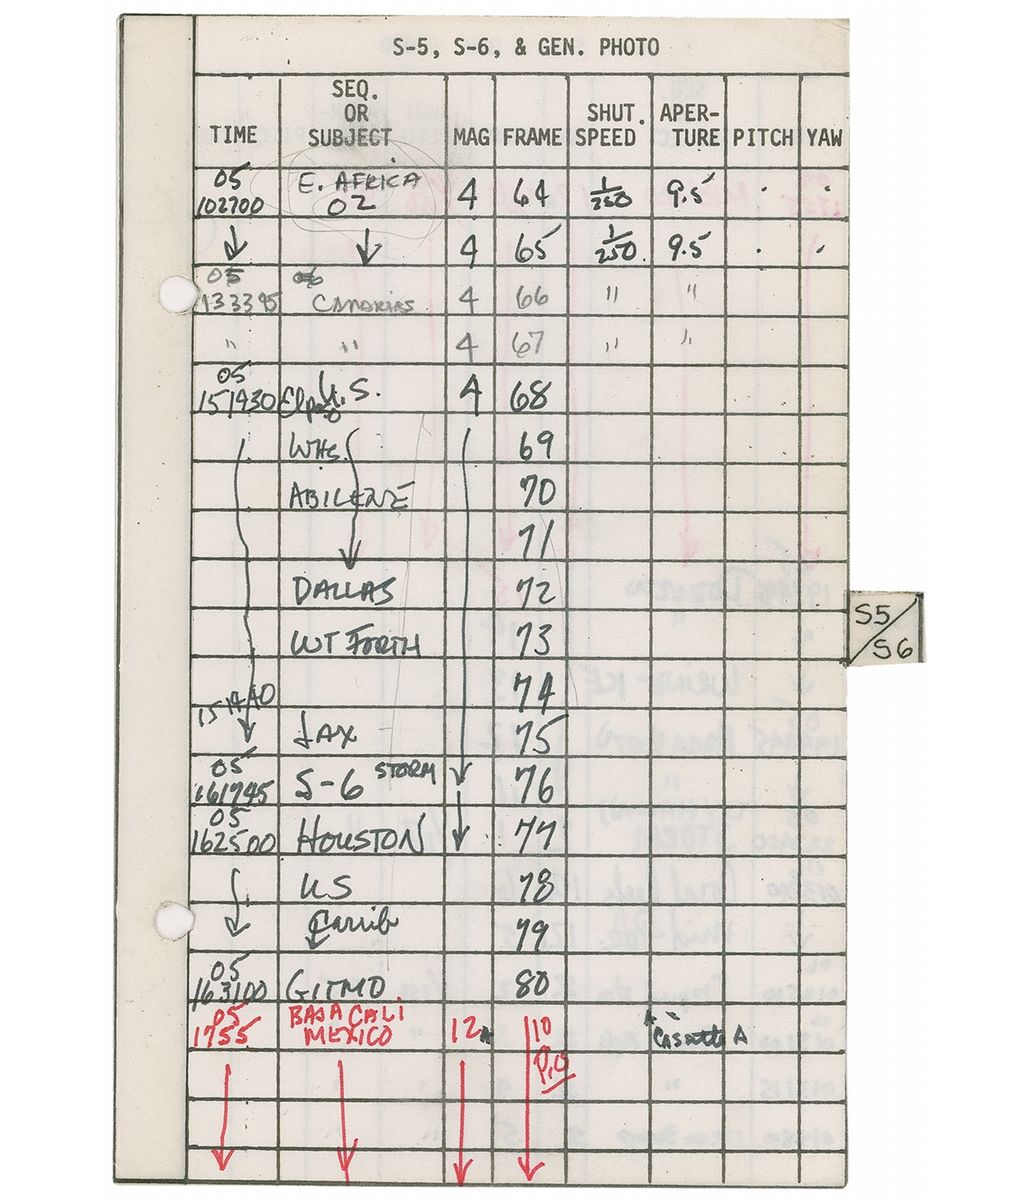 S-5, S-6, & GEN. PHOTO
TIME SEQ. OR SUBJECT MAG FRAME SHUT. SPEED APER-TURE PITCH YAW
05 102700 E. AFRICA 02 4 64 1/250 9.5 · ·
↓ ↓ 4 65 1/250 9.5 · ·
05 133395 CANARIES 4 66 " "
" " 4 67 " "
05 151930 U.S. Elpaso 4 68
WHS 69
ABILENE 70
71
DALLAS 72
WT FORTH 73
74
151440
JAX 75
05 161745 S-6 STORM 76
05 162500 HOUSTON 77
US 78
Carrib 79
05 163100 GITMO 80
05 1755 BAJA CALI MEXICO 12 10 Casette A
S5/S6